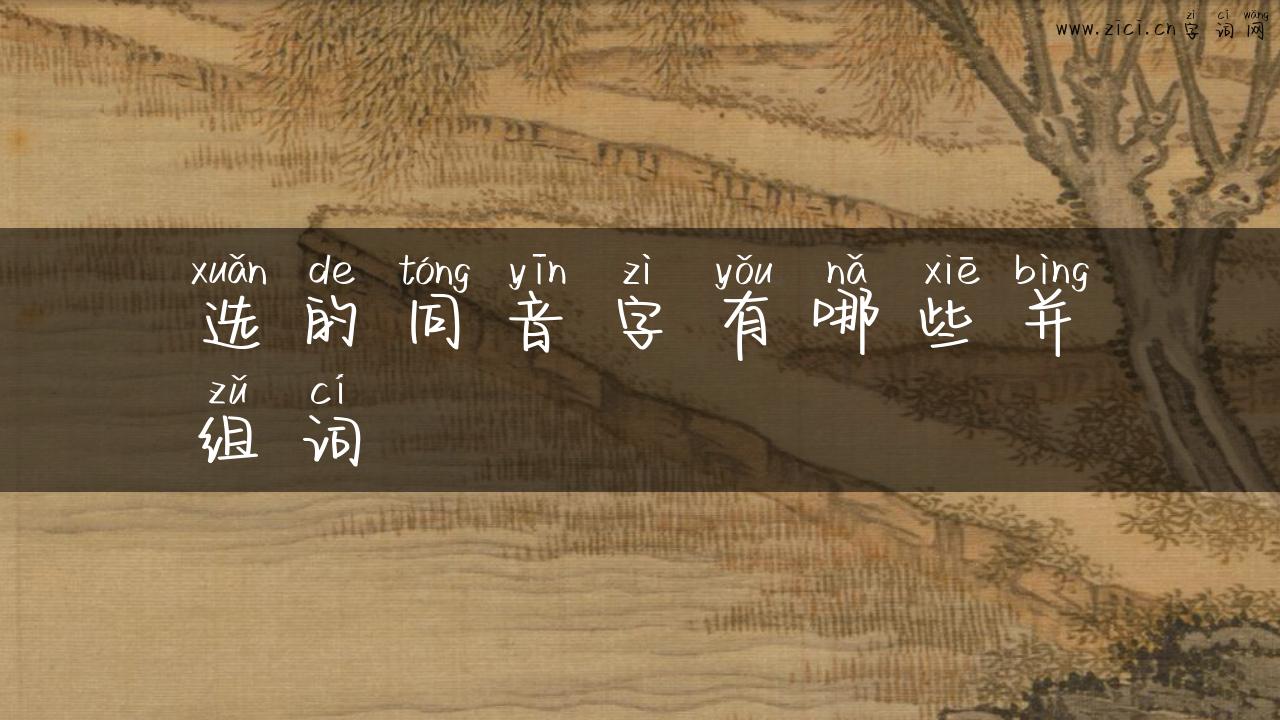 zì cí wǎng
www.zici.cn字词网
xuǎn de tóng yīn zì yǒu nǎ xiē bìng
选的同音字有哪些并
zǔ cí
组词